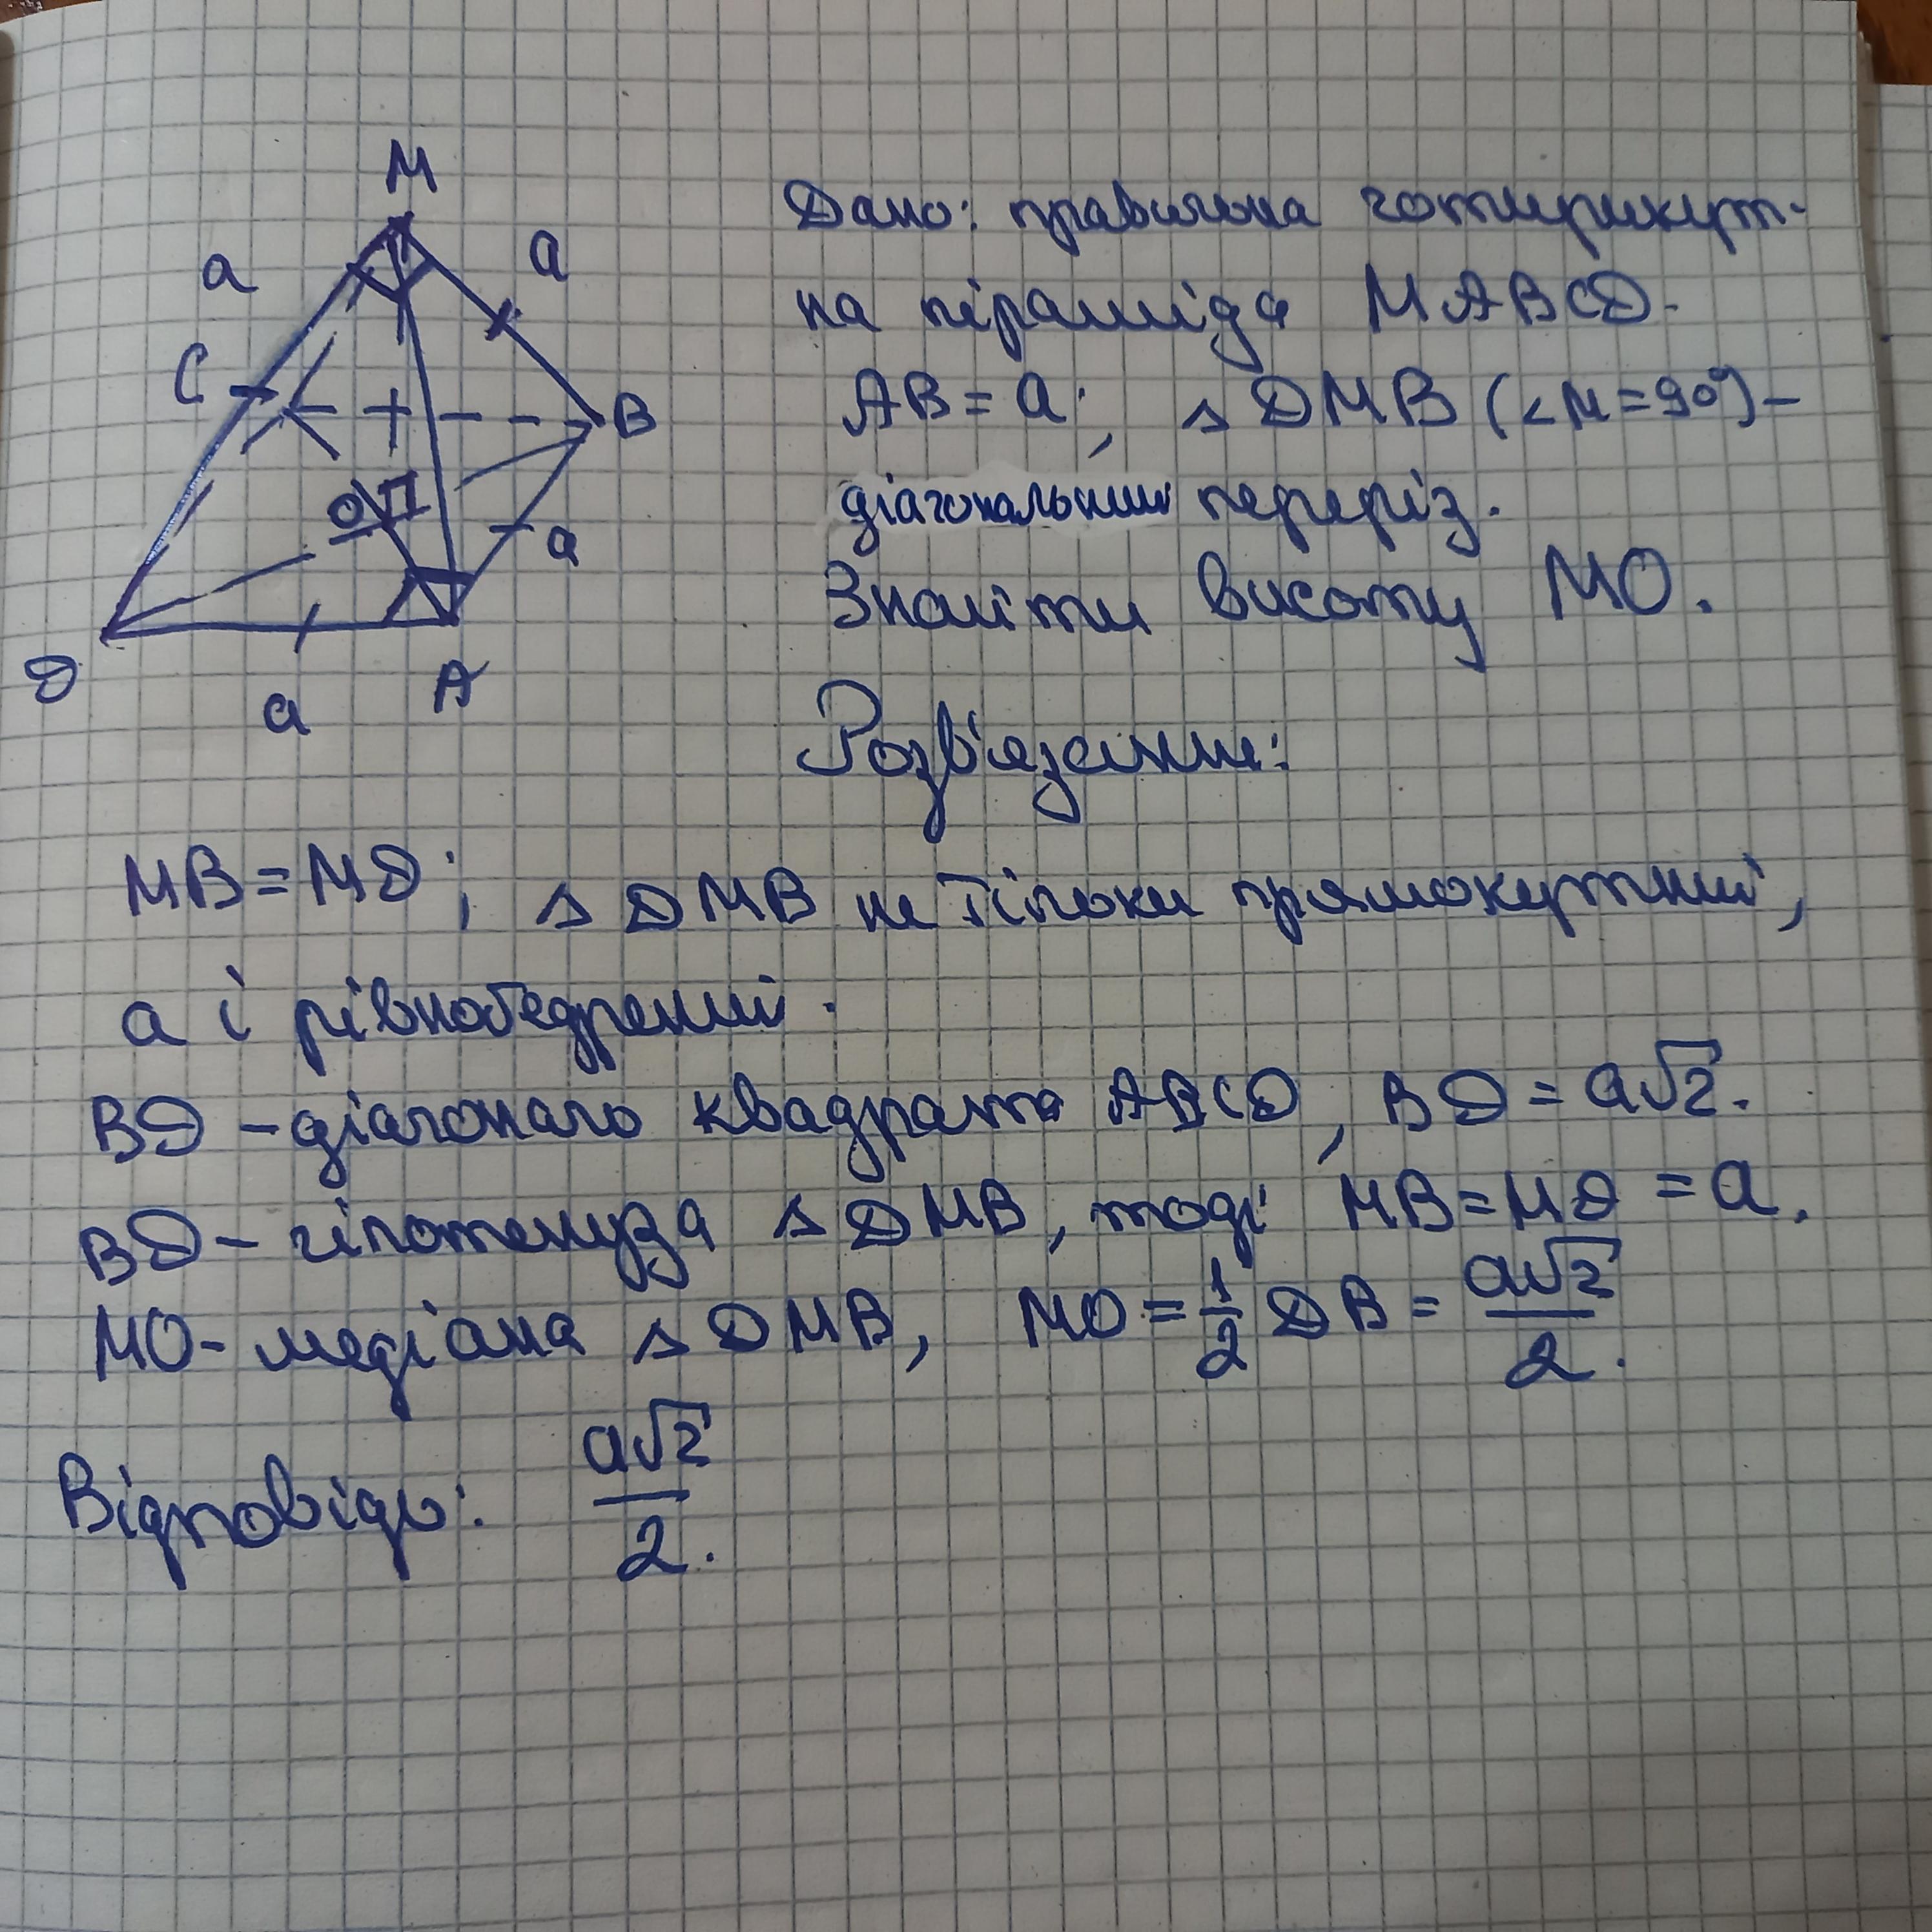 M
a
a
C
B
O
a
D
A
a
Дано: правильна чотирикут-
на піраміда MABCD.
AB = a; △ DMB (∠M = 90°) –
діагональний переріз.
Знайти висоту MO.
Розв'язання:
MB = MD; △ DMB не тільки прямокутний,
а і рівнобедрений.
BD – діагональ квадрата ABCD, BD = a√2.
BD – гіпотенуза △ DMB, тоді MB = MD = a.
MO – медіана △ DMB, MO = 1/2 DB = a√2/2.
Відповідь: a√2/2.